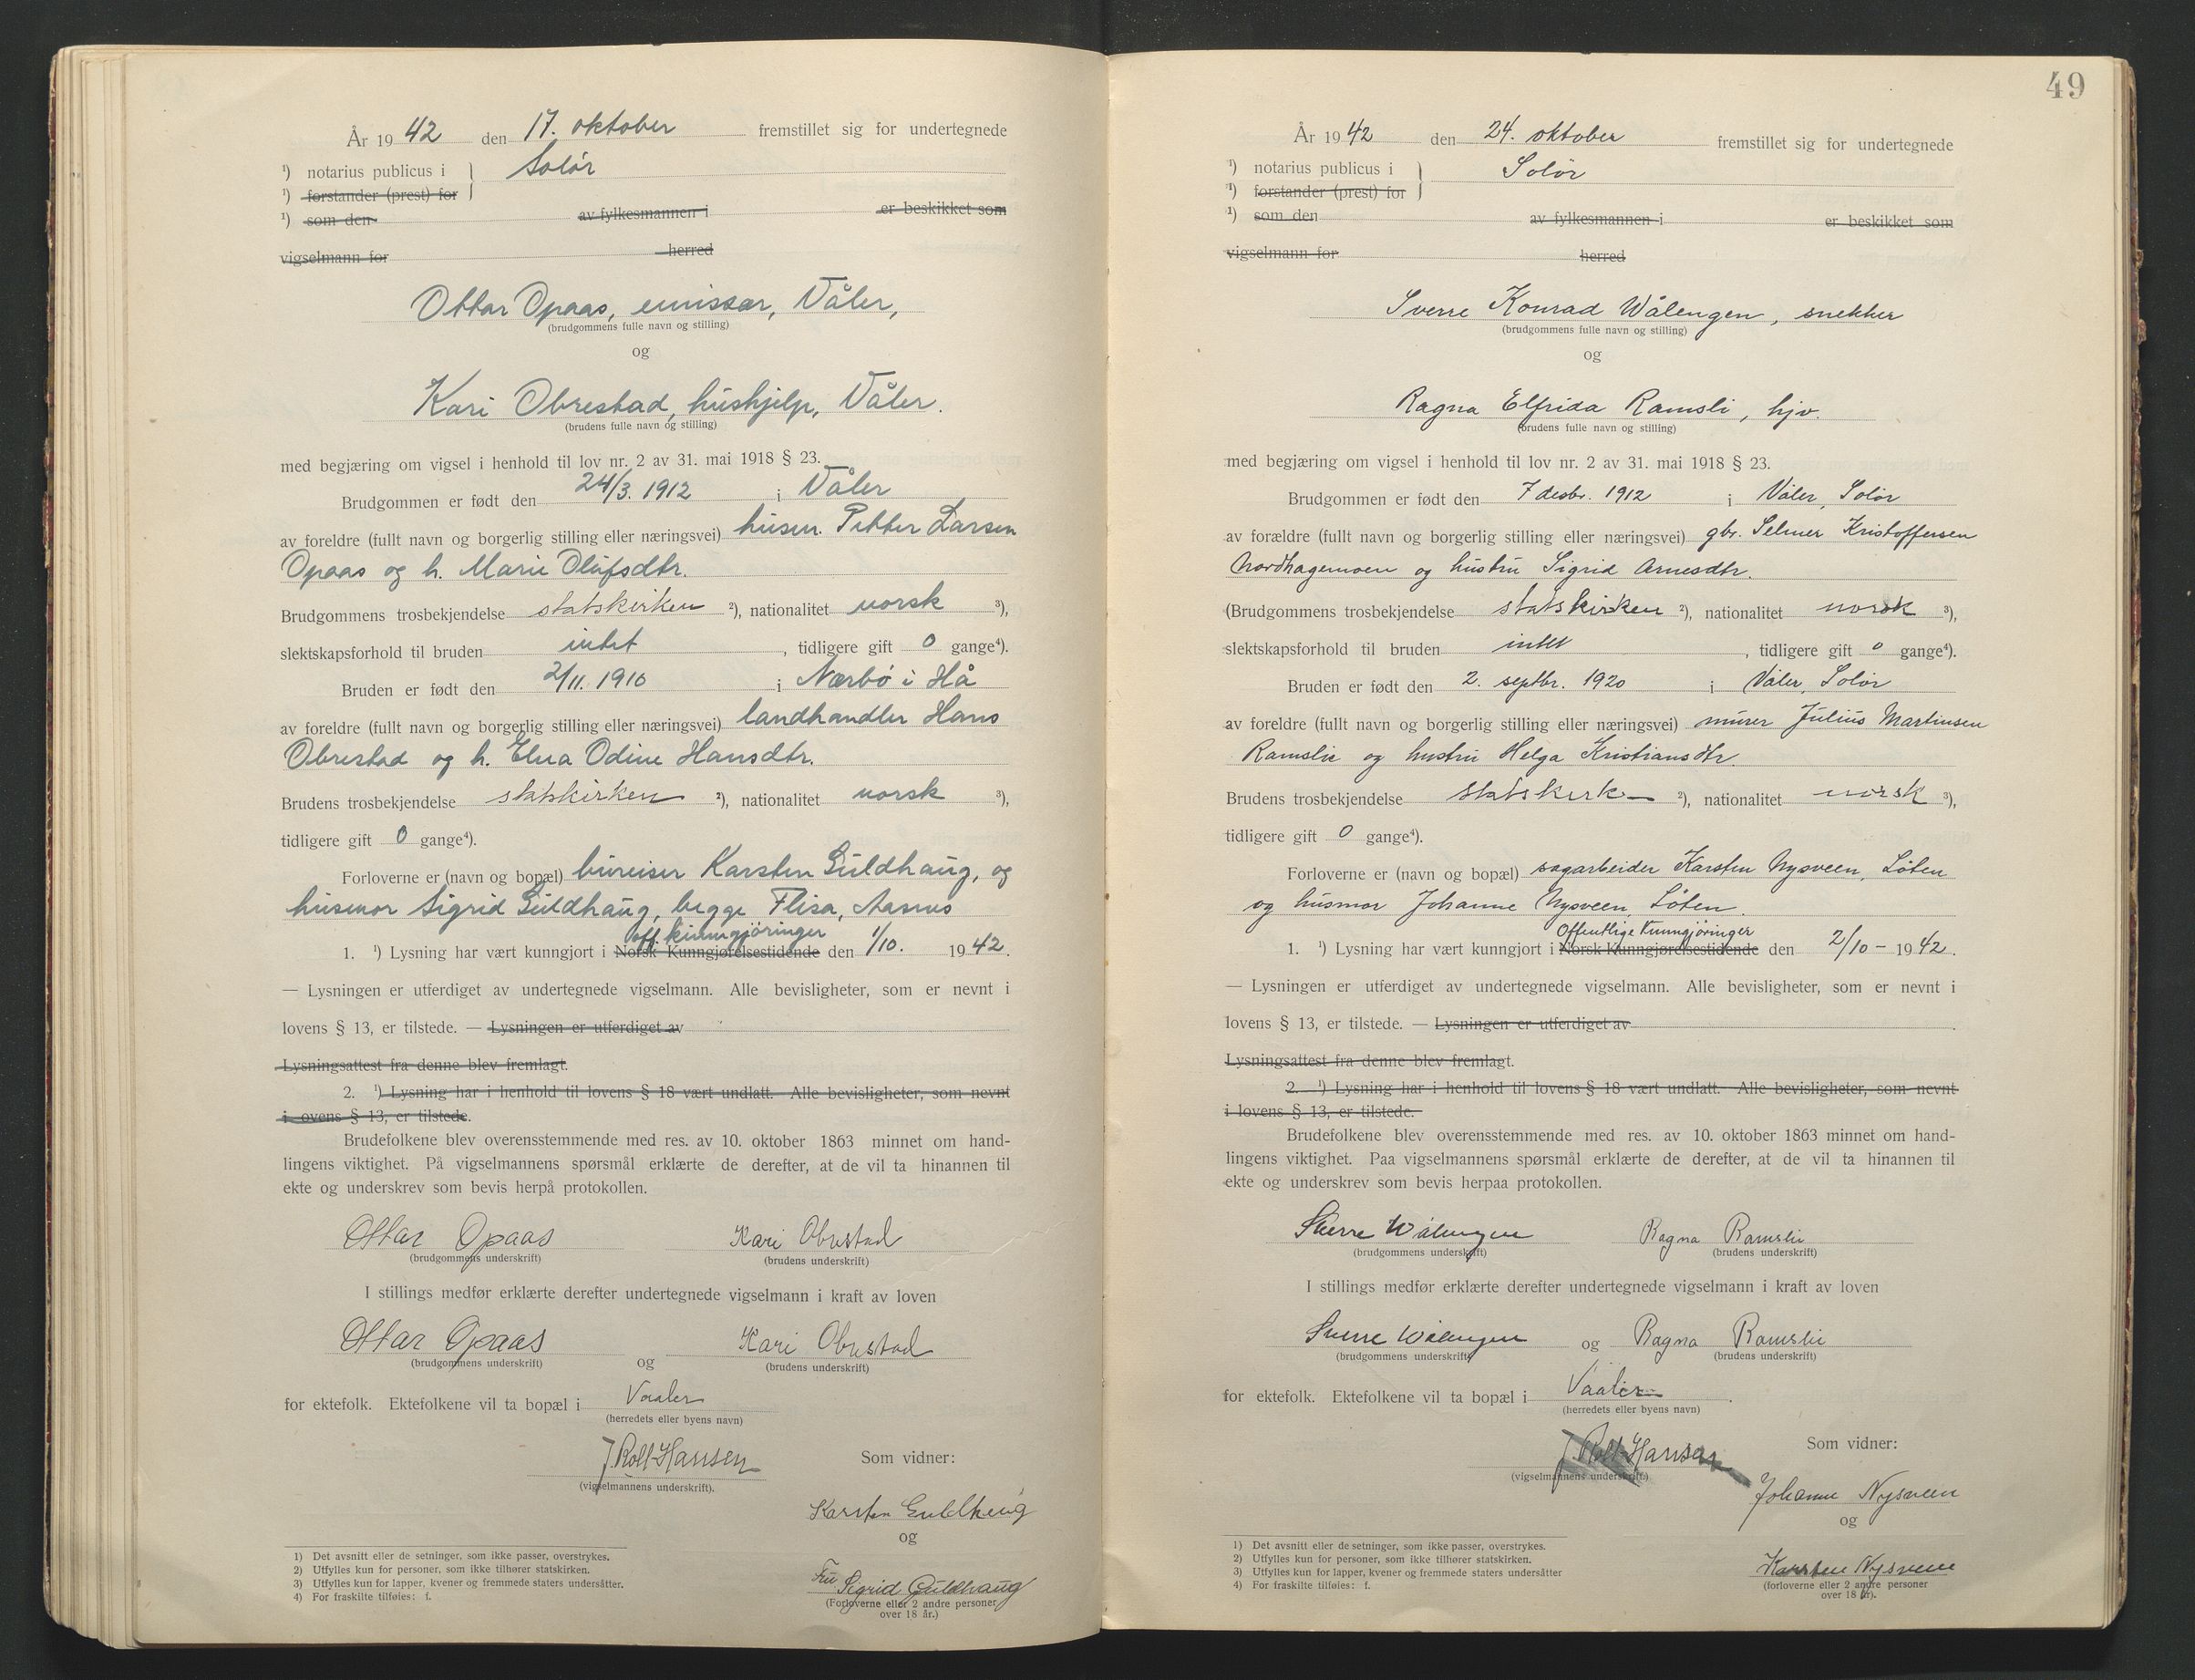 År 1942 den 17. oktober fremstillet sig for undertegnede
¹) notarius publicus i } Solør
¹) forstander (prest) for
¹) som den av fylkesmannen i er beskikket som
vigselmann for herred
Ottar Opaas, emissær, Våler,
(brudgommens fulle navn og stilling)
og
Kari Obrestad, hushjelp, Våler.
(brudens fulle navn og stilling)
med begjæring om vigsel i henhold til lov nr. 2 av 31. mai 1918 § 23.
Brudgommen er født den 24/3. 1912 i Våler
av foreldre (fullt navn og borgerlig stilling eller næringsvei) husm. Petter Larsen
Opaas og h. Marie Olufsdtr.
Brudgommens trosbekjendelse statskirken ²), nationalitet norsk ³),
slektskapsforhold til bruden intet , tidligere gift 0 gange⁴).
Bruden er født den 2/11. 1910 i Nærbø i Hå
av foreldre (fullt navn og borgerlig stilling eller næringsvei) landhandler Hans
Obrestad og h. Elna Odine Hansdtr.
Brudens trosbekjendelse statskirken ²), nationalitet norsk ³),
tidligere gift 0 gange⁴).
Forloverne er (navn og bopæl) bureiser Karsten Guldhaug, og
husmor Sigrid Guldhaug, begge Flisa, Aasnes
off. kunngjøringer
1. ¹) Lysning har vært kunngjort i Norsk Kunngjørelsestidende den 1/10. 1942.
— Lysningen er utferdiget av undertegnede vigselmann. Alle bevisligheter, som er nevnt i
lovens § 13, er tilstede. — Lysningen er utferdiget av
Lysningsattest fra denne blev fremlagt.
2. ¹) Lysning har i henhold til lovens § 18 vært undlatt. Alle bevisligheter, som nevnt
i lovens § 13, er tilstede.
Brudefolkene blev overensstemmende med res. av 10. oktober 1863 minnet om hand-
lingens viktighet. På vigselmannens spørsmål erklærte de derefter, at de vil ta hinannen til
ekte og underskrev som bevis herpå protokollen.
Ottar Opaas Kari Obrestad
(brudgommens underskrift) (brudens underskrift)
I stillings medfør erklærte derefter undertegnede vigselmann i kraft av loven
Ottar Opaas og Kari Obrestad
(brudgommens underskrift) (brudens underskrift)
for ektefolk. Ektefolkene vil ta bopæl i Vaaler
(herredets eller byens navn)
J. Roll-Hansen Som vidner:
(vigselmannens underskrift).
Karsten Guldhaug
og
Fru Sigrid Guldhaug
(Forloverne eller 2 andre personer
over 18 år.)
1) Det avsnitt eller de setninger, som ikke passer, overstrykes.
2) Utfylles kun for personer, som ikke tilhører statskirken.
3) Utfylles kun for lapper, kvener og fremmede staters undersåtter.
4) For fraskilte tilføies: f.
49
År 1942 den 24. oktober fremstillet sig for undertegnede
¹) notarius publicus i } Solør
¹) forstander (prest) for
¹) som den av fylkesmannen i er beskikket som
vigselmann for herred
Sverre Konrad Wålengen, snekker
(brudgommens fulle navn og stilling)
og
Ragna Elfrida Ramsli, hjv.
(brudens fulle navn og stilling)
med begjæring om vigsel i henhold til lov nr. 2 av 31. mai 1918 § 23.
Brudgommen er født den 7 desbr. 1912 i Våler, Solør
av forældre (fullt navn og borgerlig stilling eller næringsvei) gbr. Selmer Kristoffersen
Nordhagemoen og hustru Sigrid Arnesdtr.
(Brudgommens trosbekjendelse statskirken ²), nationalitet norsk ³),
slektskapsforhold til bruden intet , tidligere gift 0 gange⁴).
Bruden er født den 2. septbr. 1920 i Våler, Solør
av foreldre (fullt navn og borgerlig stilling eller næringsvei) murer Julius Martinsen
Ramslie og hustru Helga Kristiansdtr.
Brudens trosbekjendelse statskirken ²), nationalitet norsk ³),
tidligere gift 0 gange⁴).
Forloverne er (navn og bopæl) sagarbeider Karsten Nysveen, Løten
og husmor Johanne Nysveen, Løten.
Offentlige Kunngjøringer
1. ¹) Lysning har vært kunngjort i Norsk Kunngjørelsestidende den 2/10 - 1942.
— Lysningen er utferdiget av undertegnede vigselmann. Alle bevisligheter, som er nevnt i
lovens § 13, er tilstede. — Lysningen er utferdiget av
Lysningsattest fra denne blev fremlagt.
2. ¹) Lysning har i henhold til lovens § 18 vært undlatt. Alle bevisligheter, som nevnt
i lovens § 13, er tilstede.
Brudefolkene blev overensstemmende med res. av 10. oktober 1863 minnet om hand-
lingens viktighet. Paa vigselmannens spørsmål erklærte de derefter, at de vil ta hinannen til
ekte og underskrev som bevis herpaa protokollen.
Sverre Wålengen Ragna Ramsli
(brudgommens underskrift) (brudens underskrift)
I stillings medfør erklærte derefter undertegnede vigselmann i kraft av loven
Sverre Wålengen og Ragna Ramsli
(brudgommens underskrift) (brudens underskrift)
for ektefolk. Ektefolkene vil ta bopæl i Vaaler.
(herredets eller byens navn)
J. Roll-Hansen Som vidner:
(vigselmannens underskrift.)
Johanne Nysveen
og
Karsten Nysveen
(forloverne eller 2 andre personer
over 18 år).
1) Det avsnitt eller de setninger, som ikke passer, overstrykes.
2) Utfylles kun for personer, som ikke tilhører statskirken.
3) Utfylles kun for lapper, kvener og fremmede staters undersåtter
4) For fraskilte tilføies: f.